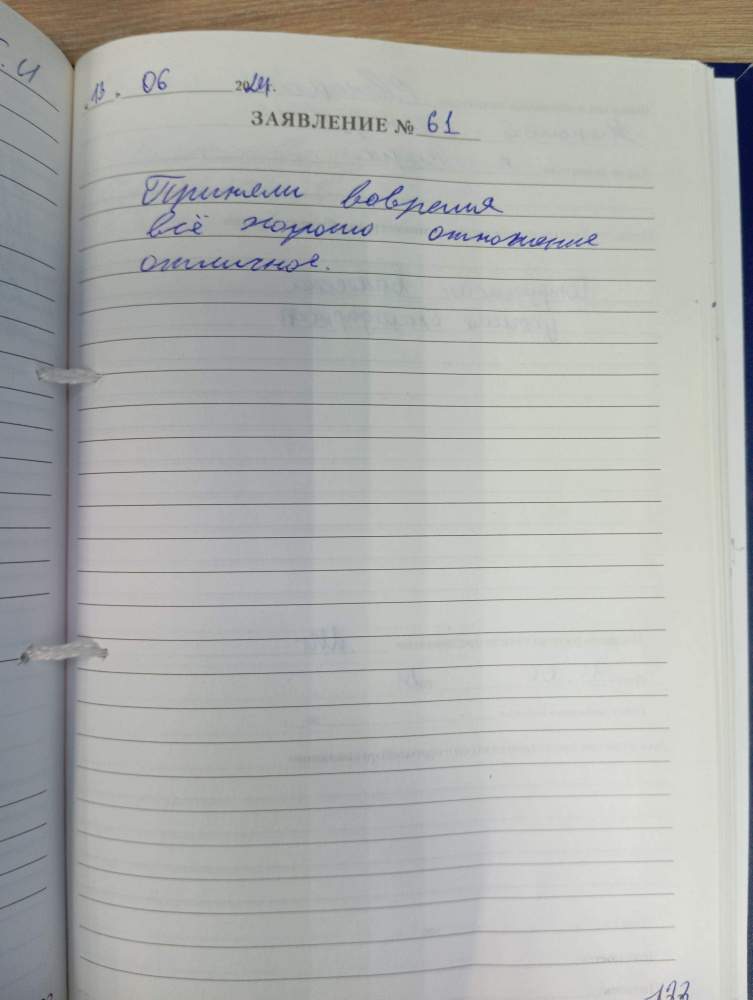 13. 06 2024г.
ЗАЯВЛЕНИЕ № 61
Приняли вовремя
всё хорошо отношение
отличное.